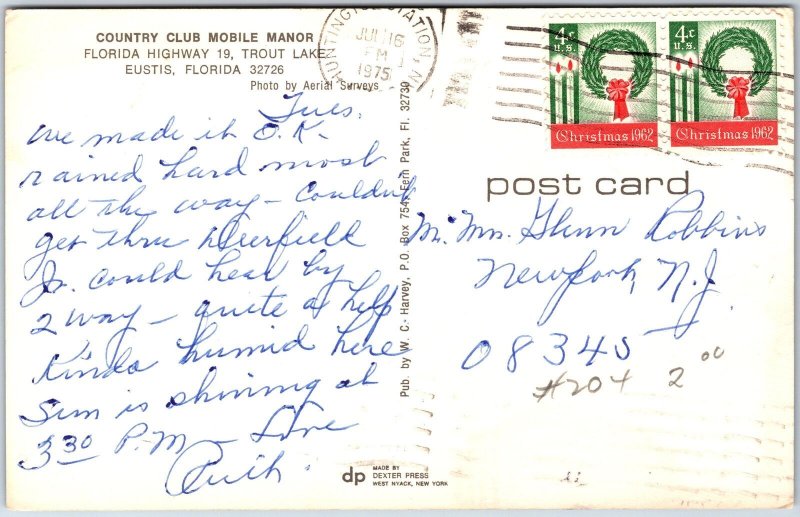 COUNTRY CLUB MOBILE MANOR
FLORIDA HIGHWAY 19, TROUT LAKE
EUSTIS, FLORIDA 32726
Photo by Aerial Surveys
HUNTINGTON STATION, N
JUL 16
PM
1975
4c
U.S.
Christmas 1962
4c
U.S.
Christmas 1962
Tues.
We made it O.K.
rained hard most
all the way – Couldn't
get thru Deerfield
Jr. could hear by
2 way – quite a help
Kinda humid here
Sun is shining at
3 30 P.M – Love
Ruth.
Pub. by W. C. Harvey, P.O. Box 754, Fern Park, Fl. 32730
post card
Mr. Mrs. Glenn Robbins
Newport, N.J.
08345
#204 2 00
dp
MADE BY
DEXTER PRESS
WEST NYACK, NEW YORK